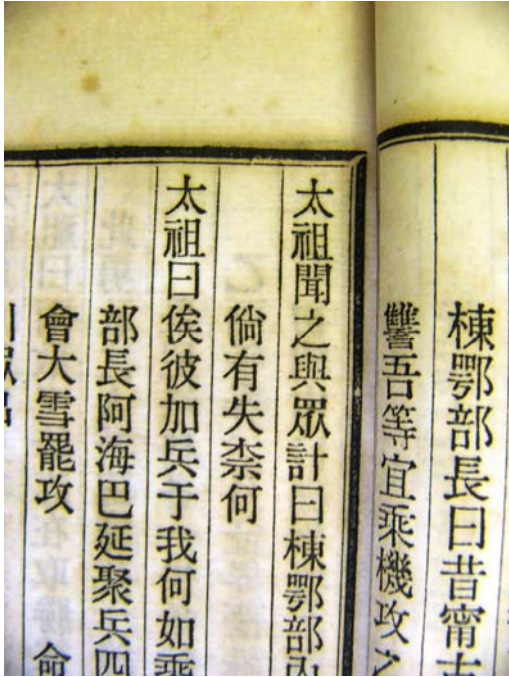 棟鄂部長曰昔甯古
讐吾等宜乗機攻之
太祖聞之與眾計曰棟鄂部內
倘有失柰何
太祖曰俟彼加兵于我何如乘
部長阿海巴延聚兵四
會大雪罷攻 命